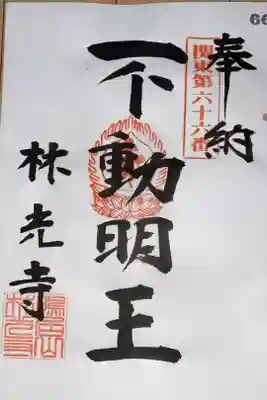 66
奉納
関東第六十六番
不動明王
林光寺